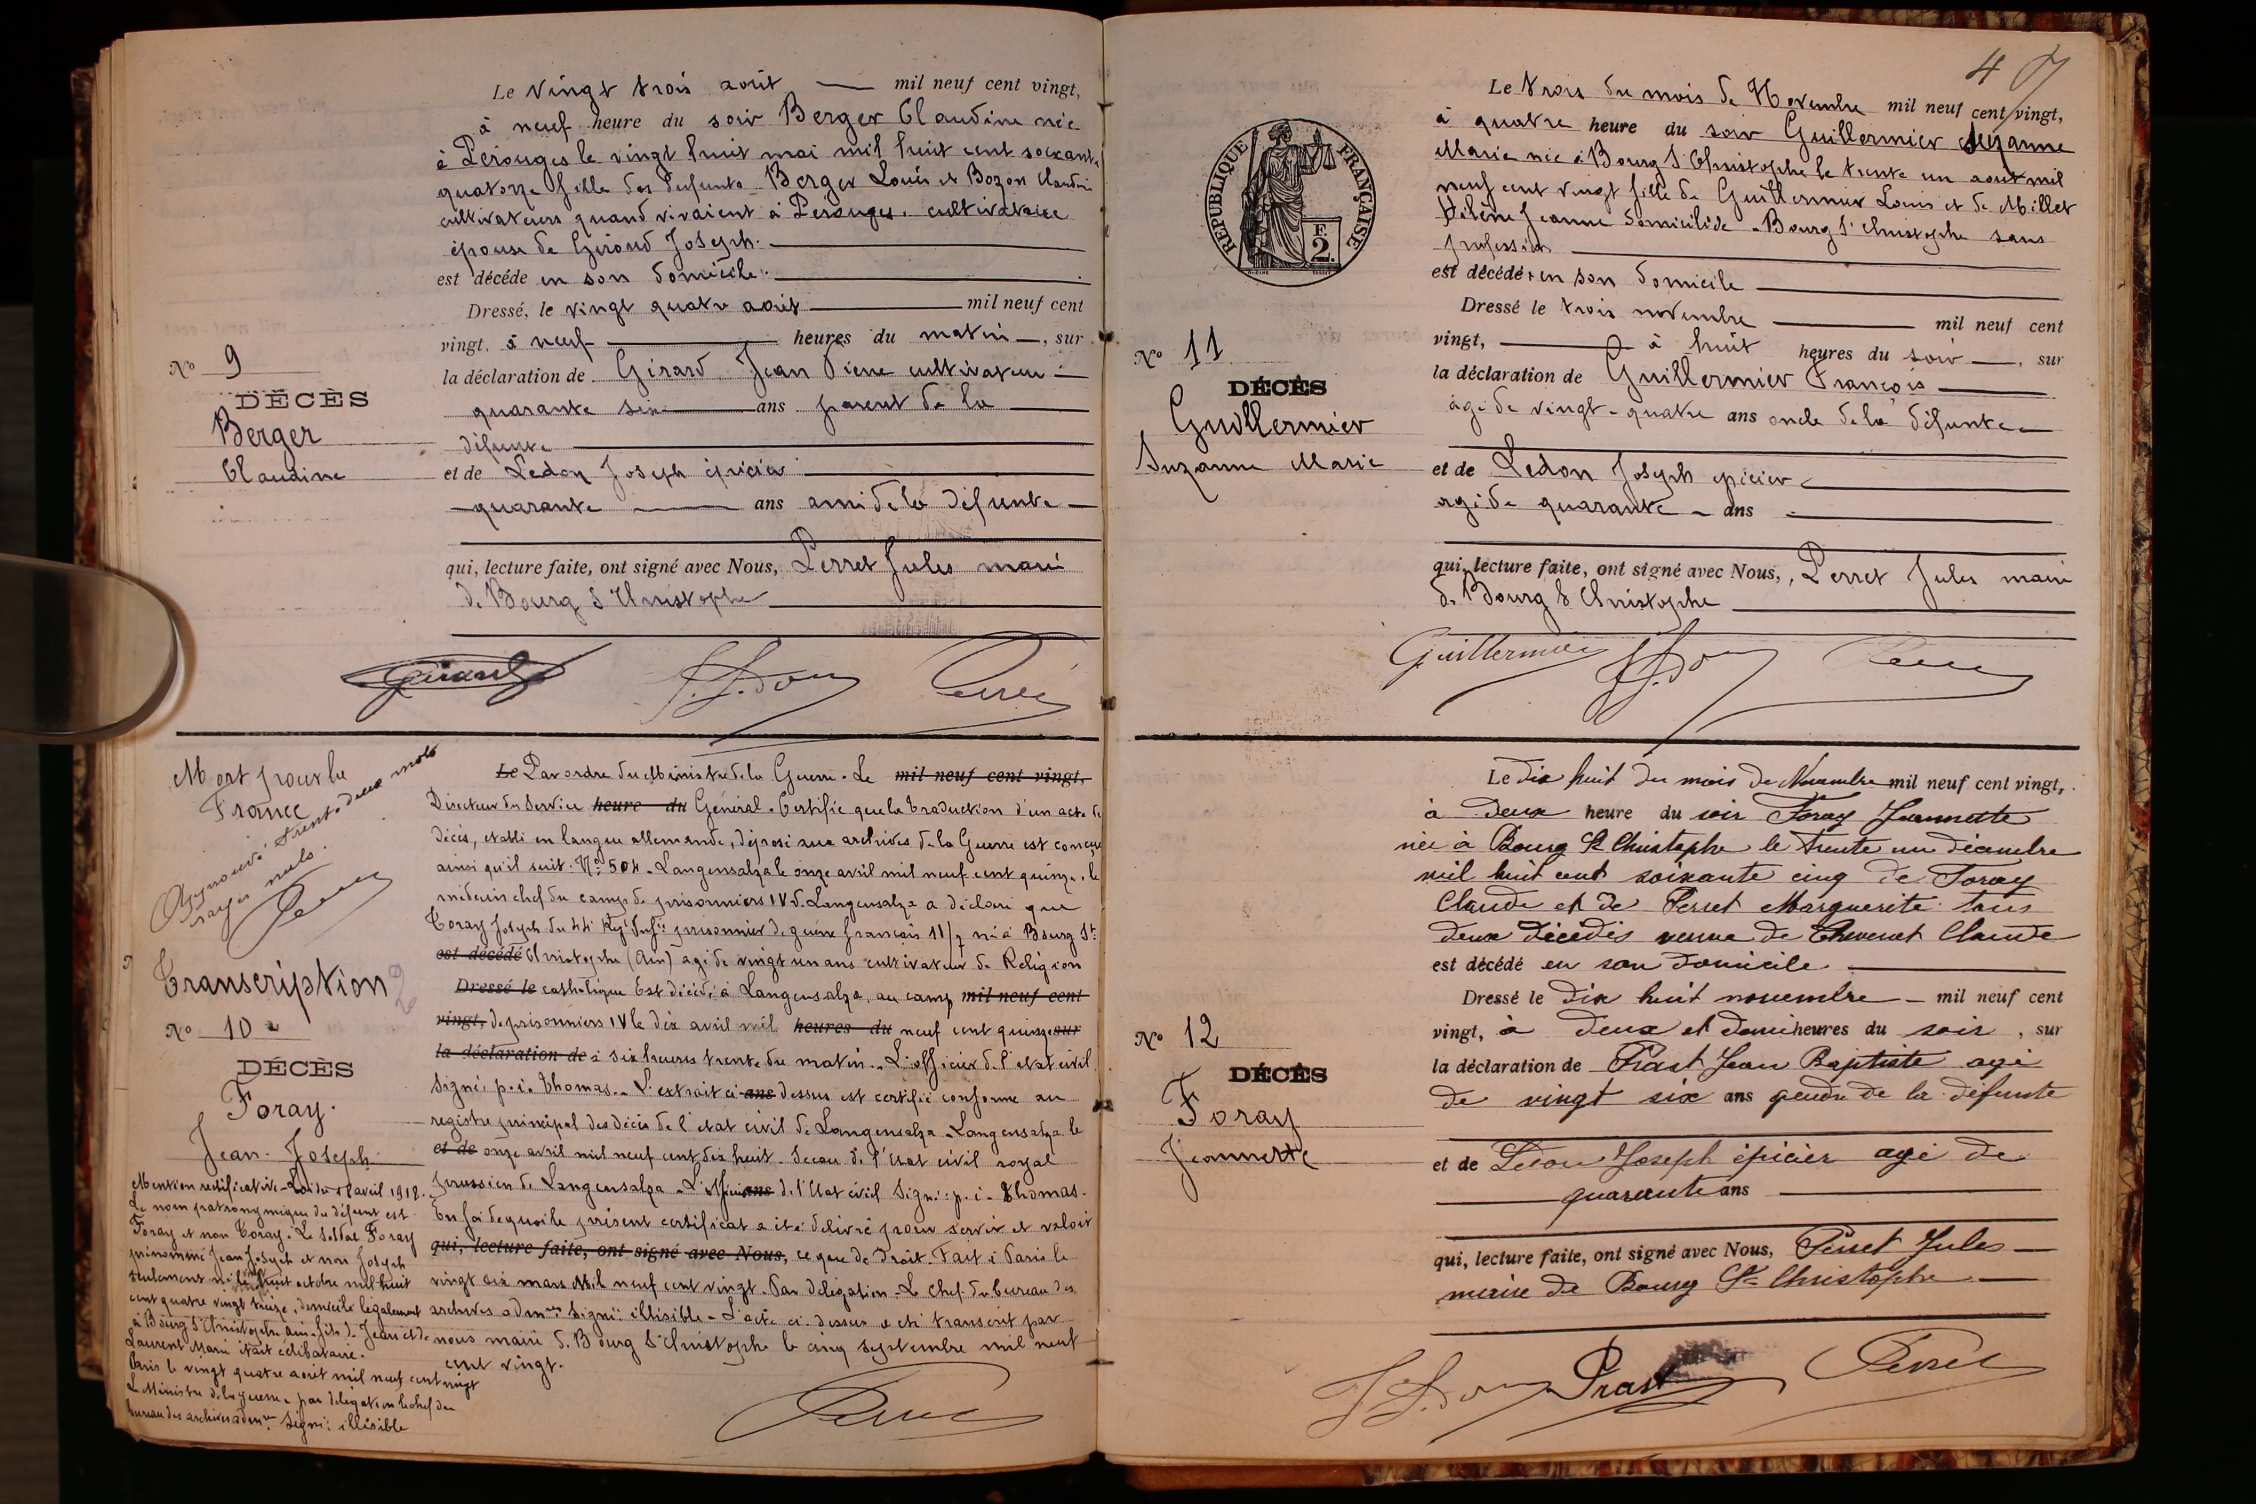 Le vingt trois août mil neuf cent vingt,
à neuf heure du soir Berger Claudine née
à Pérouges le vingt huit mai mil huit cent soixante
quatorze fille des defunts Berger Louis et Bozon Claudine
cultivateurs quand vivaient à Pérouges. cultivatrice
épouse de Giraud Joseph.
est décéde en son domicile.
Dressé, le vingt quatre août mil neuf cent
vingt, à neuf heures du matin, sur
la déclaration de Girard Jean Pierre cultivateur
quarante six ans parent de la
défunte
et de Ledon Joseph épicier
quarante ans ami de la défunte
qui, lecture faite, ont signé avec Nous, Perret Jules maire
de Bourg St Christophe
No 9
DÉCÈS
Berger
Claudine
Girard J. Ledon Perret
Mort pour la
France
Approuvé trente deux mots
rayés nuls.
Perret
Transcription
No 10
DÉCÈS
Foray.
Jean Joseph
Mention rectificative - Loi du 18 avril 1918.
Le nom patronymique du défunt est
Foray et non Toray. Le soldat Foray
prénommé Jean Joseph et non Joseph
seulement né le huit octobre mil huit
cent quatre vingt treize, domicilié légalement
à Bourg St Christophe Ain - fils de Jean et de
Laurent Marie était célibataire.
Paris le vingt quatre août mil neuf cent vingt
Le Ministre de la guerre. par délégation le chef du
bureau des archives admves Signé: illisible
Le Par ordre du Ministre de la Guerre. Le mil neuf cent vingt,
Directeur du Service heure du Général - Certifie que la traduction d'un acte de
décès, établi en langue allemande, déposé aux archives de la Guerre est conçue
ainsi qu'il suit: No 504 - Langensalza le onze avril mil neuf cent quinze, le
médecin chef du camp de prisonniers IV d. Langensalza a déclaré que
Toray Joseph du 44e Regt Infie prisonnier de guerre français 11/7 né à Bourg St
est décédé Christophe (Ain) agé de vingt un ans cultivateur de Religion
Dressé le catholique Est décédé à Langensalza, au camp mil neuf cent
vingt, de prisonniers IV le dix avril mil heures du neuf cent quinze sur
la déclaration de à six heures trente du matin.. L'officier de l'état civil
Signé: p.i. Thomas.. L'extrait ci ans dessus est certifié conforme au
registre principal des décès de l'état civil de Langensalza - Langensalza le
et de onze avril mil neuf cent dix huit. Sceau de l'Etat civil royal
prussien de Langensalza - L'officier ans de l'Etat civil Signé: p.i. Thomas.
En foi de quoi le présent certificat a été délivré pour servir et valoir
qui, lecture faite, ont signé avec Nous, ce que de droit. Fait à Paris le
vingt six mars Mil neuf cent vingt. Par délégation. Le Chef du bureau des
archives admves Signé: illisible - L'acte ci-dessus a été transcrit par
nous maire de Bourg St Christophe le cinq septembre mil neuf
cent vingt.
Perret
47
Le trois du mois de Novembre mil neuf cent vingt,
à quatre heure du soir Guillermier Suzanne
Marie née à Bourg St Christophe le trente un août mil
neuf cent vingt fille de Guillermier Louis et de Millet
Hélène Jeanne domiciliée à Bourg St Christophe sans
profession
est décédée en son domicile
Dressé le trois novembre mil neuf cent
vingt, à huit heures du soir, sur
la déclaration de Guillermier François
agé de vingt-quatre ans oncle de la défunte
et de Ledon Joseph epicier
agé de quarante ans
qui, lecture faite, ont signé avec Nous, Perret Jules maire
de Bourg St Christophe
RÉPUBLIQUE FRANÇAISE
F.
2.
No 11
DÉCÈS
Guillermier
Suzanne Marie
Guillermier J. Ledon Perret
Le dix huit du mois de Novembre mil neuf cent vingt,
à deux heure du soir Foray Jeannette
née à Bourg St Christophe le trente un décembre
mil huit cent soixante cinq de Foray
Claude et de Perret Marguerite tous
deux décédés veuve de Thevenet Claude
est décédé en son domicile
Dressé le dix huit novembre mil neuf cent
vingt, à deux et demi heures du soir, sur
la déclaration de Prast Jean Baptiste agé
de vingt six ans gendre de la défunte
et de Ledon Joseph épicier agé de
quarante ans
qui, lecture faite, ont signé avec Nous, Perret Jules
maire de Bourg St Christophe
No 12
DÉCÈS
Foray
Jeannette
J. Ledon Prast Perret